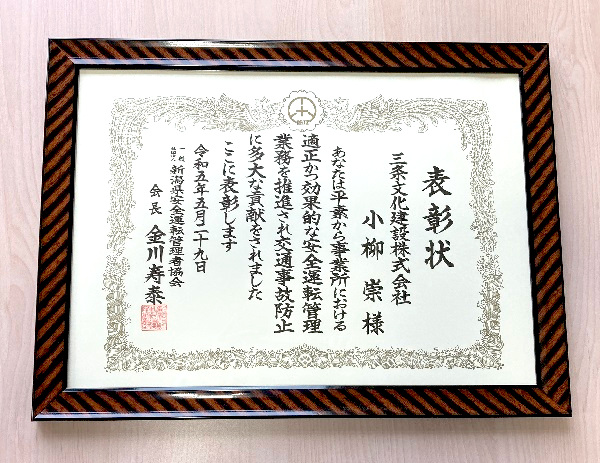 表彰状
三条文化建設株式会社
小柳 崇 様
あなたは平素から事業所における
適正かつ効果的な安全運転管理
業務を推進され交通事故防止
に多大な貢献をされました
ここに表彰します
令和五年五月二十九日
一般社団法人 新潟県安全運転管理者協会
会長 金川寿泰